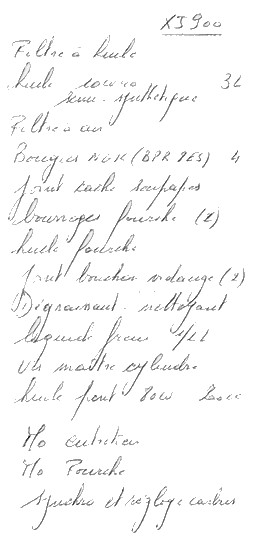 XJ 900
Filtre à huile
huile 10W40 3L
semi-synthétique
Filtre a air
Bougies NGK (BPR 9ES) 4
joint cache soupapes
bourrages fourche (2)
huile fourche
joint bouchon vidange (2)
Dégraissant-nettoyant
liquide frein 1/2 L
vis maitre cylindre
huile pont 80W 200cc
Mo entretien
Mo Fourche
synchro et réglage carbus